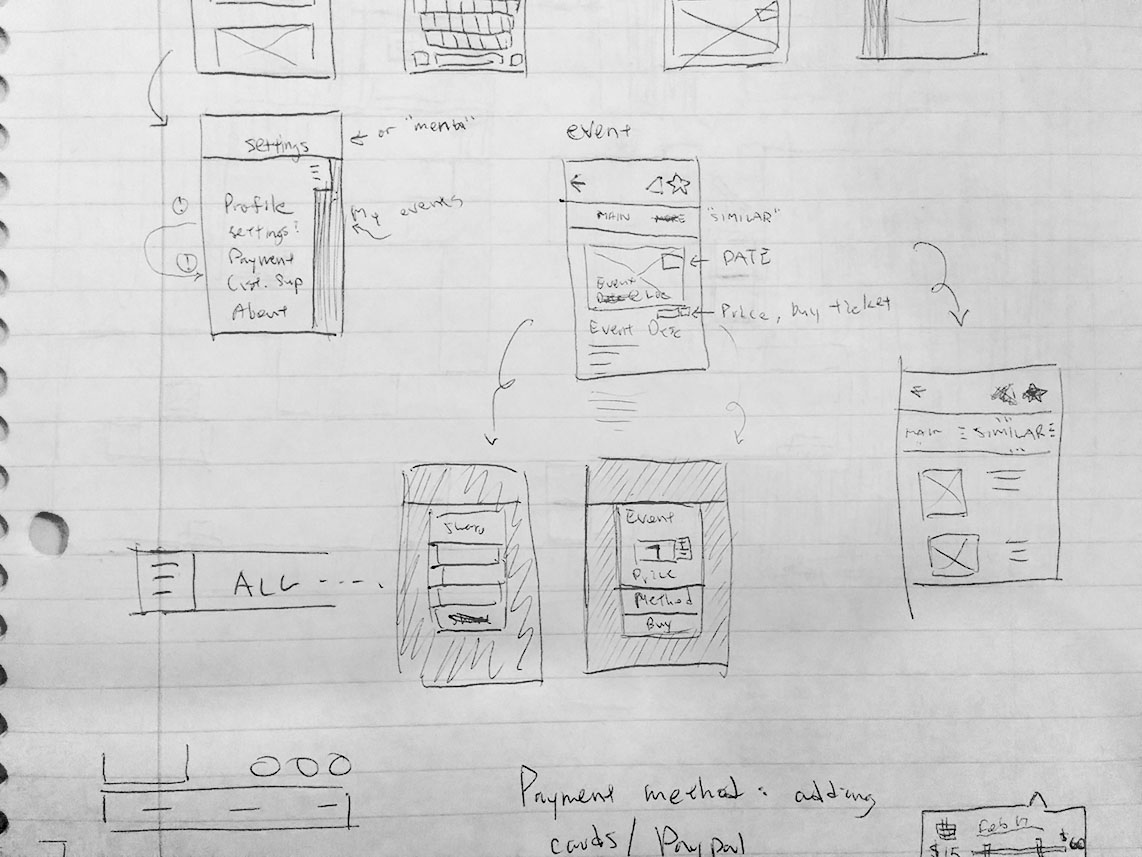 settings
← or "menu"
Profile
settings?
Payment
Cust. Sup
About
My events
event
MAIN
"SIMILAR"
DATE
Event
@ Loc
Price, buy ticket
Event Desc
MAIN SIMILAR
Share
Event
1
Price
Method
Buy
ALL ----.
Payment method: adding
cards/ Paypal
Feb 17
$15
$60